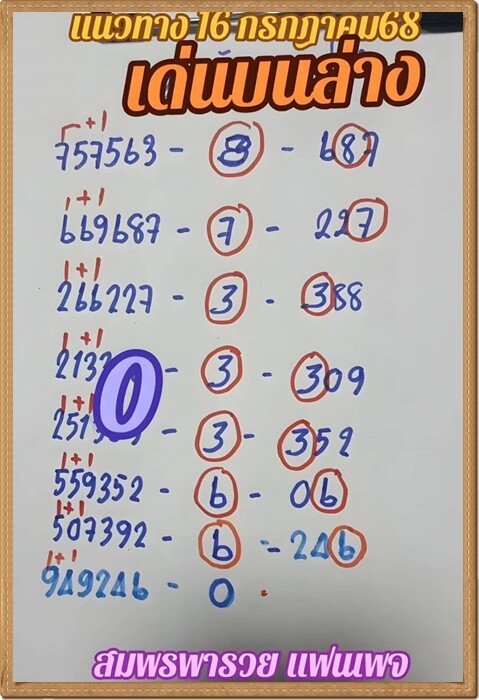 แนวทาง 16 กรกฎาคม68
เด่นบนล่าง
+1
757563 - 8 - 687
1+1
669687 - 7 - 227
1+1
266227 - 3 - 388
1+1
0 - 3 - 309
1+1
- 3 - 352
1+1
559352 - 6 - 06
1+1
507392 - 6 - 246
1+1
949246 - 0
สมพรพารวย แฟนเพจ